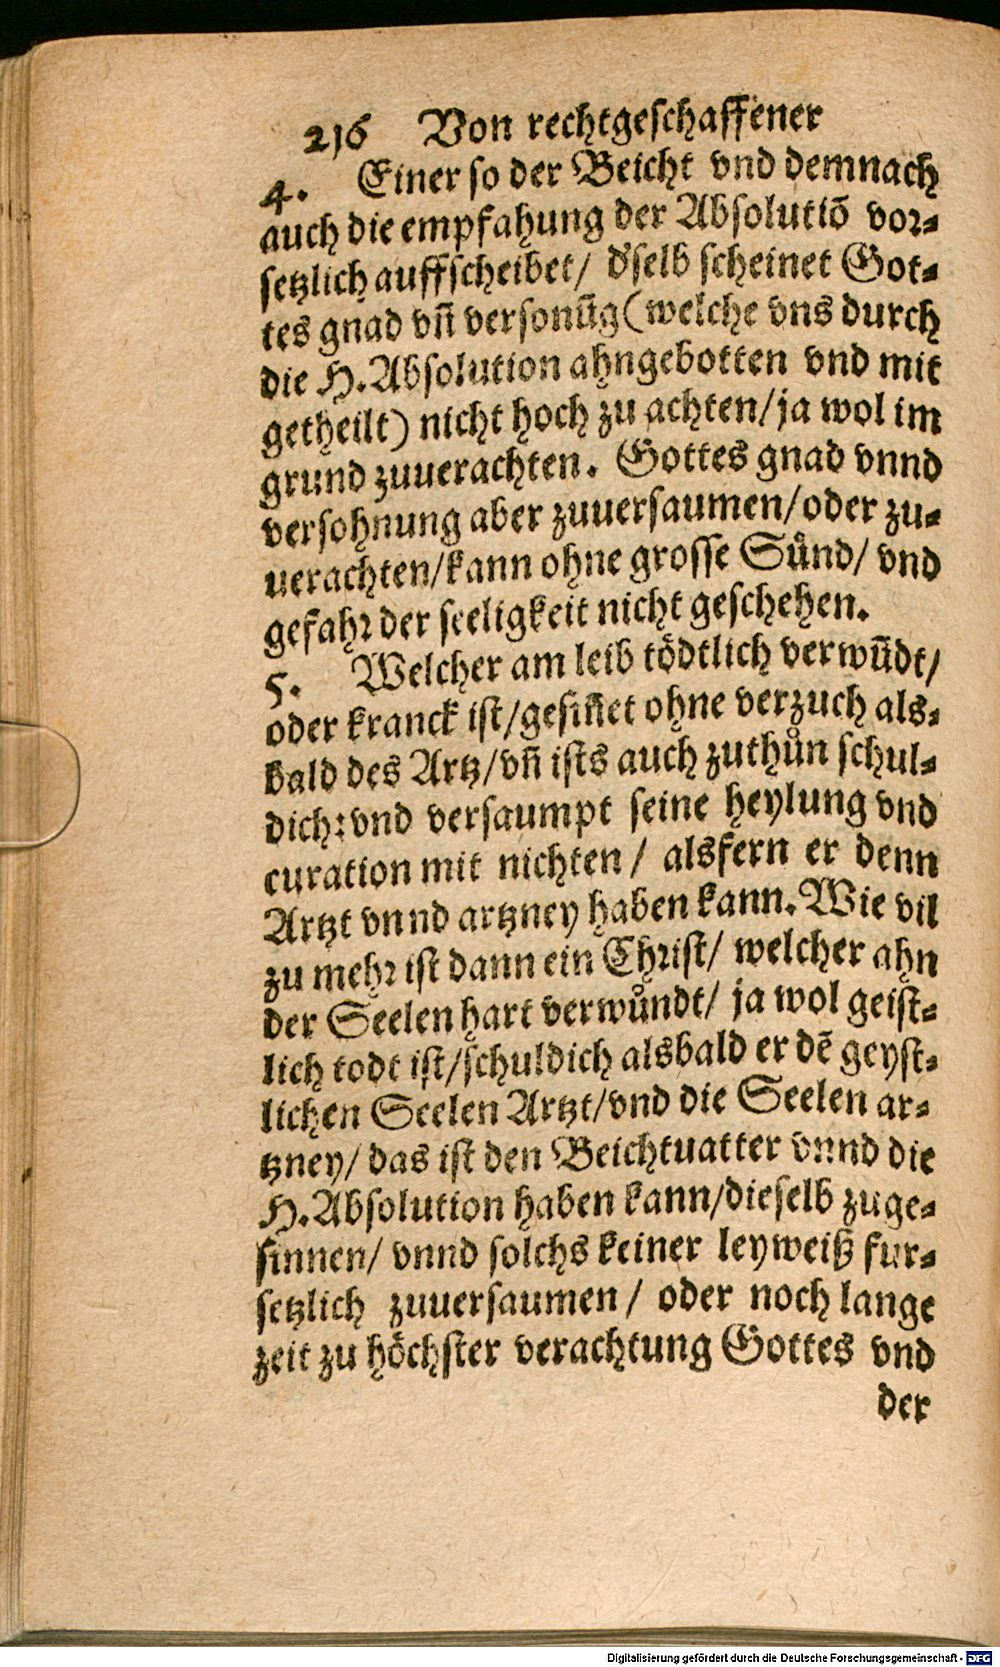 216 Von rechtgeschaffener
4. Einer so der Beicht vnd demnach
auch die empfahung der Absolutiō vor-
setzlich auffscheibet/ d'selb scheinet Got-
tes gnad vn̄ versonūg (welche vns durch
die H. Absolution ahngebotten vnd mit
getheilt) nicht hoch zu achten/ ja wol im
grund zuuerachten. Gottes gnad vnnd
versohnung aber zuuersaumen/ oder zu-
uerachten/ kann ohne grosse Sůnd/ vnd
gefahr der seeligkeit nicht geschehen.
5. Welcher am leib tödtlich verwūdt/
oder kranck ist/ gesiñet ohne verzuch als-
bald des Artz/ vn̄ ists auch zuthůn schul-
dich: vnd versaumpt seine heylung vnd
curation mit nichten/ alsfern er denn
Artzt vnnd artzney haben kann. Wie vil
zu mehr ist dann ein Christ/ welcher ahn
der Seelen hart verwůndt/ ja wol geist-
lich todt ist/ schuldich alsbald er dē geyst-
lichen Seelen Artzt/ vnd die Seelen ar-
tzney/ das ist den Beichtuatter vnnd die
H. Absolution haben kann/ dieselb zuge-
sinnen/ vnnd solchs keiner ley weiß fur-
setzlich zuuersaumen/ oder noch lange
zeit zu höchster verachtung Gottes vnd
der
Digitalisierung gefördert durch die Deutsche Forschungsgemeinschaft - DFG